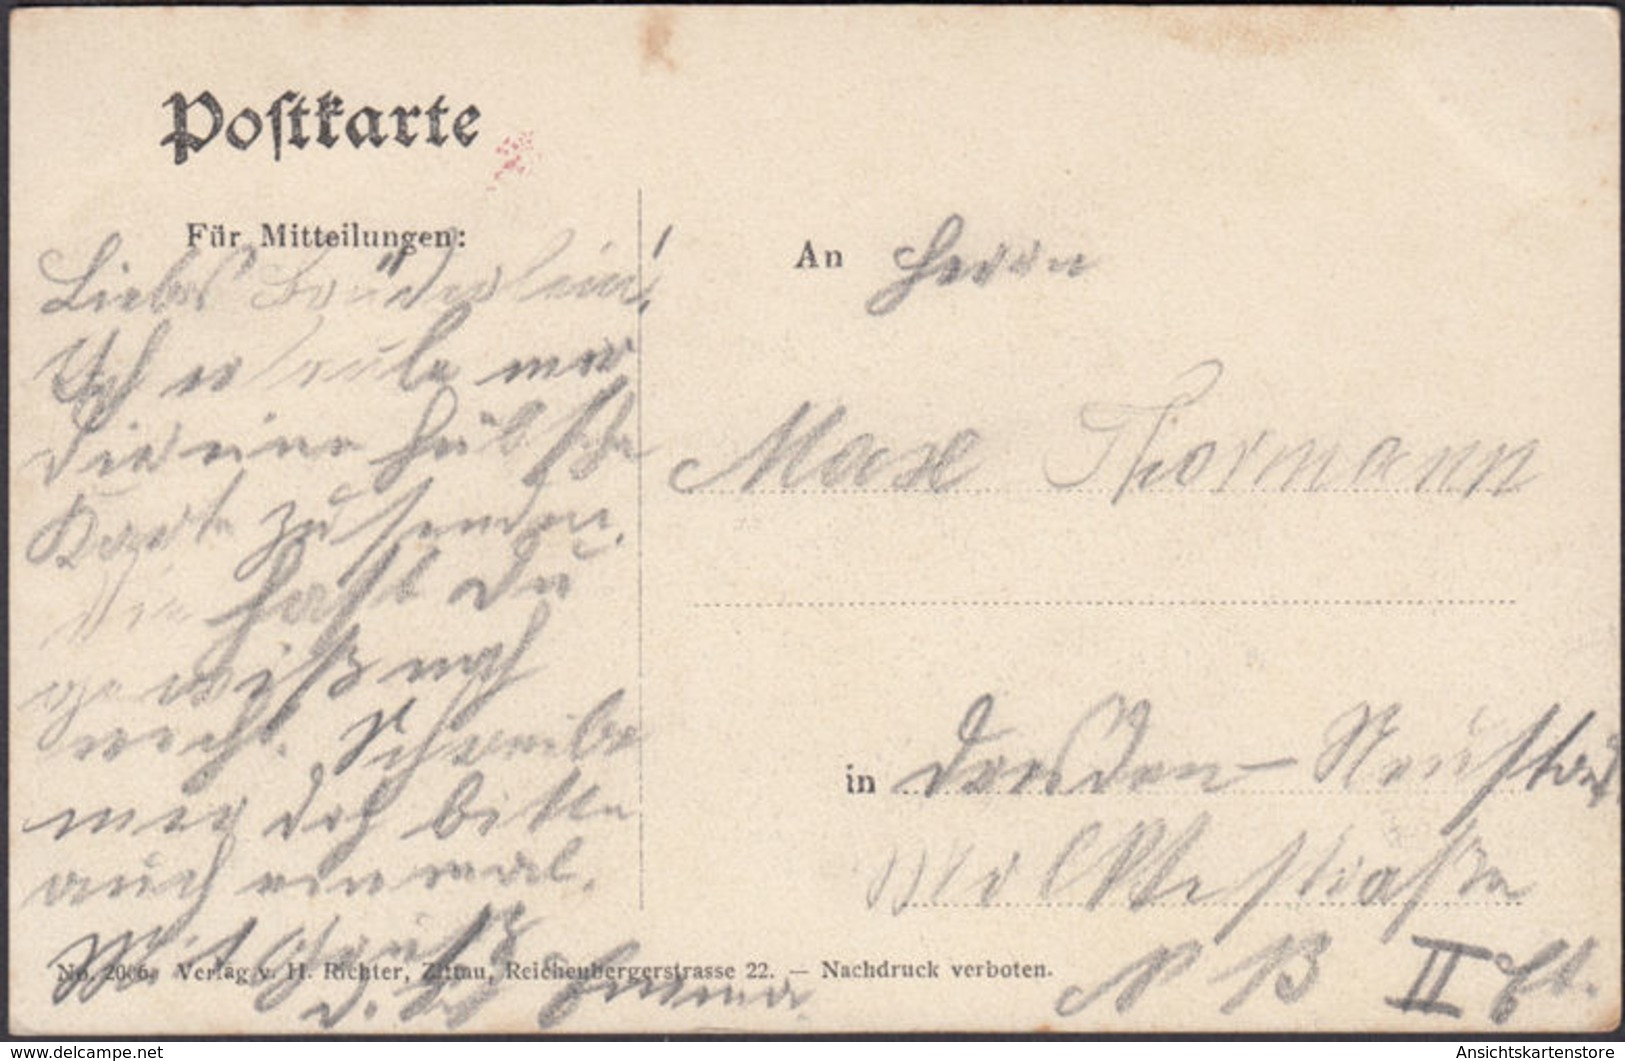 Postkarte
Für Mitteilungen:
Liebes Brüderlein!
Ich erlaube mir
Dir eine hübsche
Karte zu senden.
Die hast Du
gewiß noch
nicht. Schreibe
mir doch bitte
auch einmal.
Mit Gruß
d.
An Herrn
Max Thormann
in Dresden-Neustadt
Moltkestraße
N 13 II Et.
No. 2006. Verlag v. H. Richter, Zittau, Reichenbergerstrasse 22. — Nachdruck verboten.
www.delcampe.net
Ansichtskartenstore